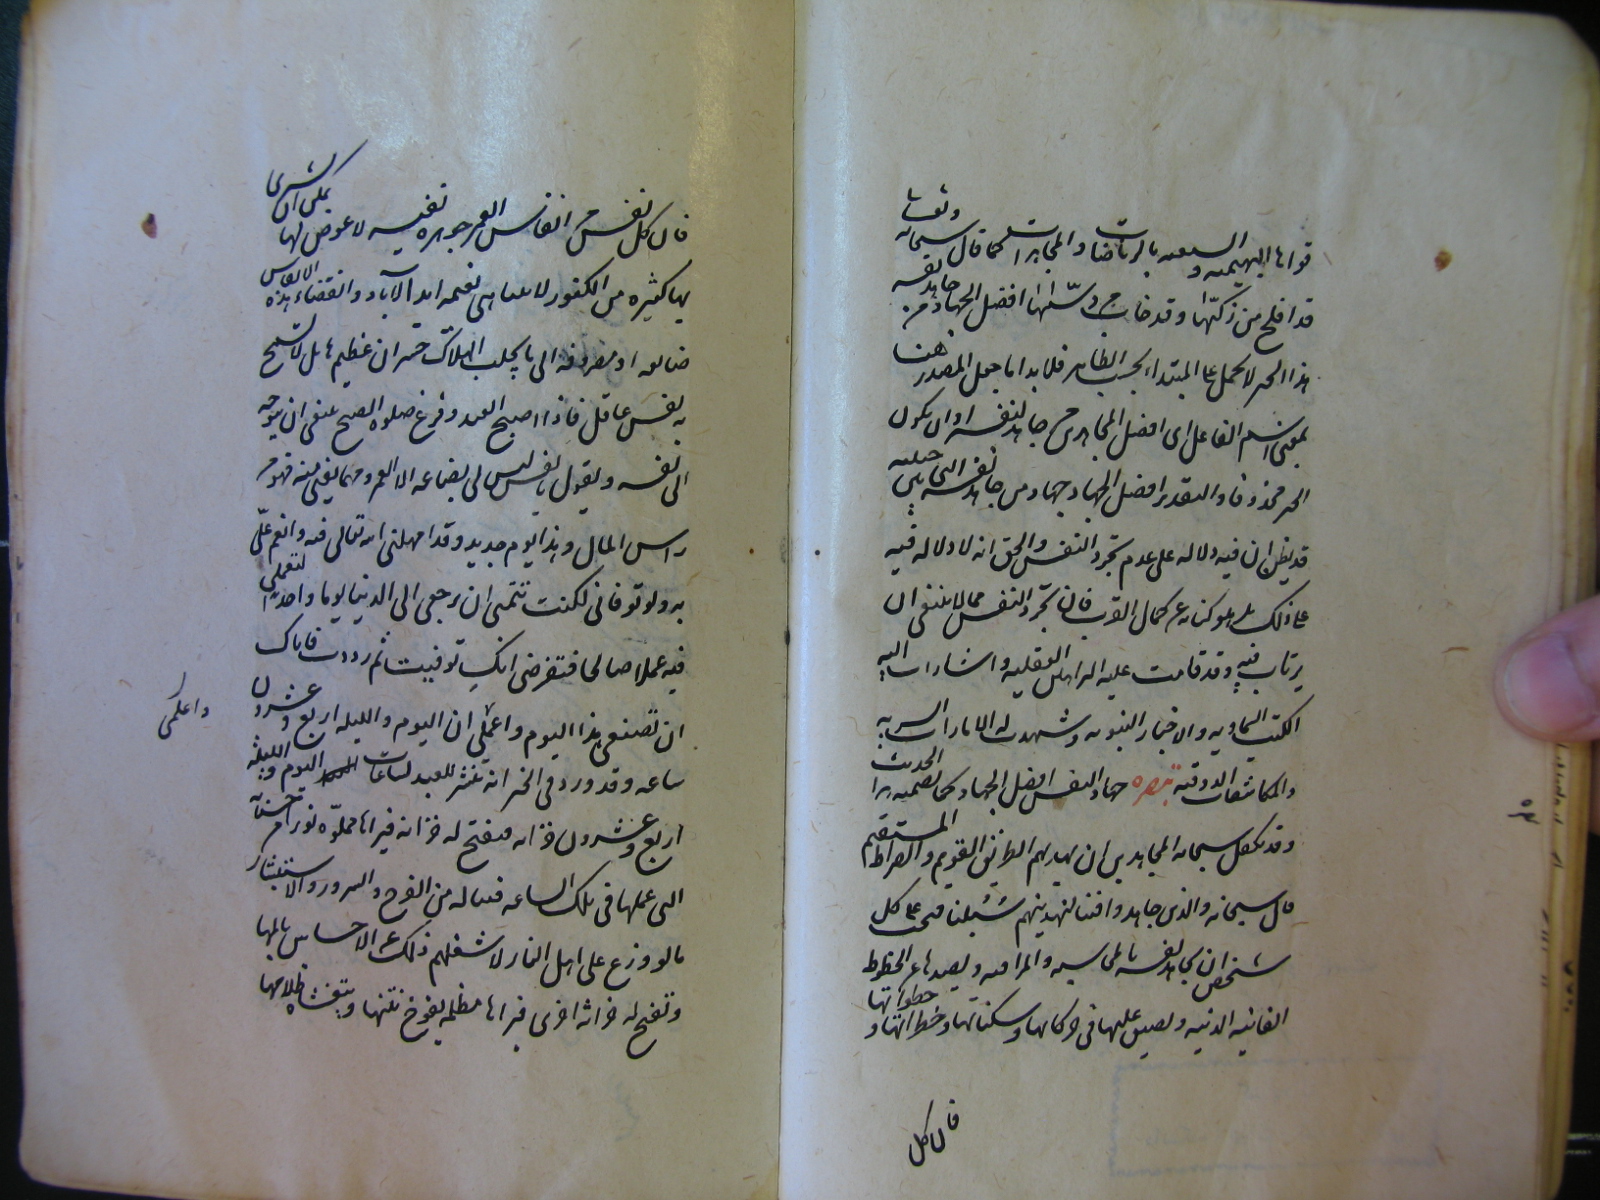 قواها البهيمية و السبعية بالرياضات والمجاهدات كما قال سبحانه وتعالى
قد افلح من زكيها وقد خاب من دسيها افضل الجهاد من جاهد نفسه
هذا الخبر لا يحمل على المبتداء بحسب الظاهر فلا بد اما جعل المصدر هنا
بمعنى اسم الفاعل اى افضل المجاهدين من جاهد نفسه او ان يكون
الخبر محذوفا والتقدير افضل الجهاد جهاد من جاهد نفسه التى بين جنبيه
قد يظن ان فيه دلالة على عدم تجرد النفس والحق انه لا دلالة فيه
على ذلك بل هو كناية عن كمال القرب فان تجرد النفس مما لا ينبغى ان
يرتاب فيه وقد قامت عليه البراهين العقلية واشارات اليه
الكتب السماوية والاخبار النبوية وشهدت له الامارات السرية
والمكاشفات الذوقية تبصره جهاد النفس افضل الجهاد كما تضمنه هذا الحديث
وقد تكفل سبحانه للمجاهدين ان يهديهم الطريق القويم والصراط المستقيم
قال سبحانه والذين جاهدوا فينا لنهدينهم سبلنا فيجب على كل
شخص ان يجاهد نفسه بالمحاسبة والمراقبة ويصدها عن الحظوظ
الفانية الدنية ويضيق عليها فى حركاتها وسكناتها وخطراتها و خطواتها
فان كل
فان كل نفس من انفاس العمر جوهرة نفيسه لا عوض لها يمكن ان يشترى
بها كثيره من الكنوز لا يتناهى نعيمه ابد الآباد وانقضاء هذه الانفاس
ضايعة او مصروفة الى ما يجلب الهلاك خسران عظيم هايل لا تسمح
به نفس عاقل فاذا اصبح العبد وفرغ من صلوة الصبح ينبغى ان يتوجه
الى نفسه ويقول يا نفس ليس لى بضاعة الا العمر ومهما يفنى منه فهو من
راس المال وهذا يوم جديد وقد امهلنى الله تعالى فيه وانعم علّى
به ولو توفانى لكنت تتمنى ان يرجعنى الى الدنيا يوما واحدا لتعملى
فيه عملا صالحا فتفرضى انكِ توفيت ثم رددت فاياك
ان تضيعى هذا اليوم واعملى ان اليوم والليلة اربع وعشرون
واعلمى
ساعه وقد ورد فى الخبر انه ينشر للعبد لساعات اليوم والليلة
اربع وعشرون خزانه فيفتح له خزانه فيراها مملوّه نورا من حسناته
التى عملها فى تلك الساعه فيناله من الفرح والسرور والاستبشار
ما لو وزع على اهل النار لاشغلهم ذلك عن الاحساس بالمها
وتفتح له خزانة اخرى فيراها مظلمه يفوح نتنها ويتغشاه ظلامها